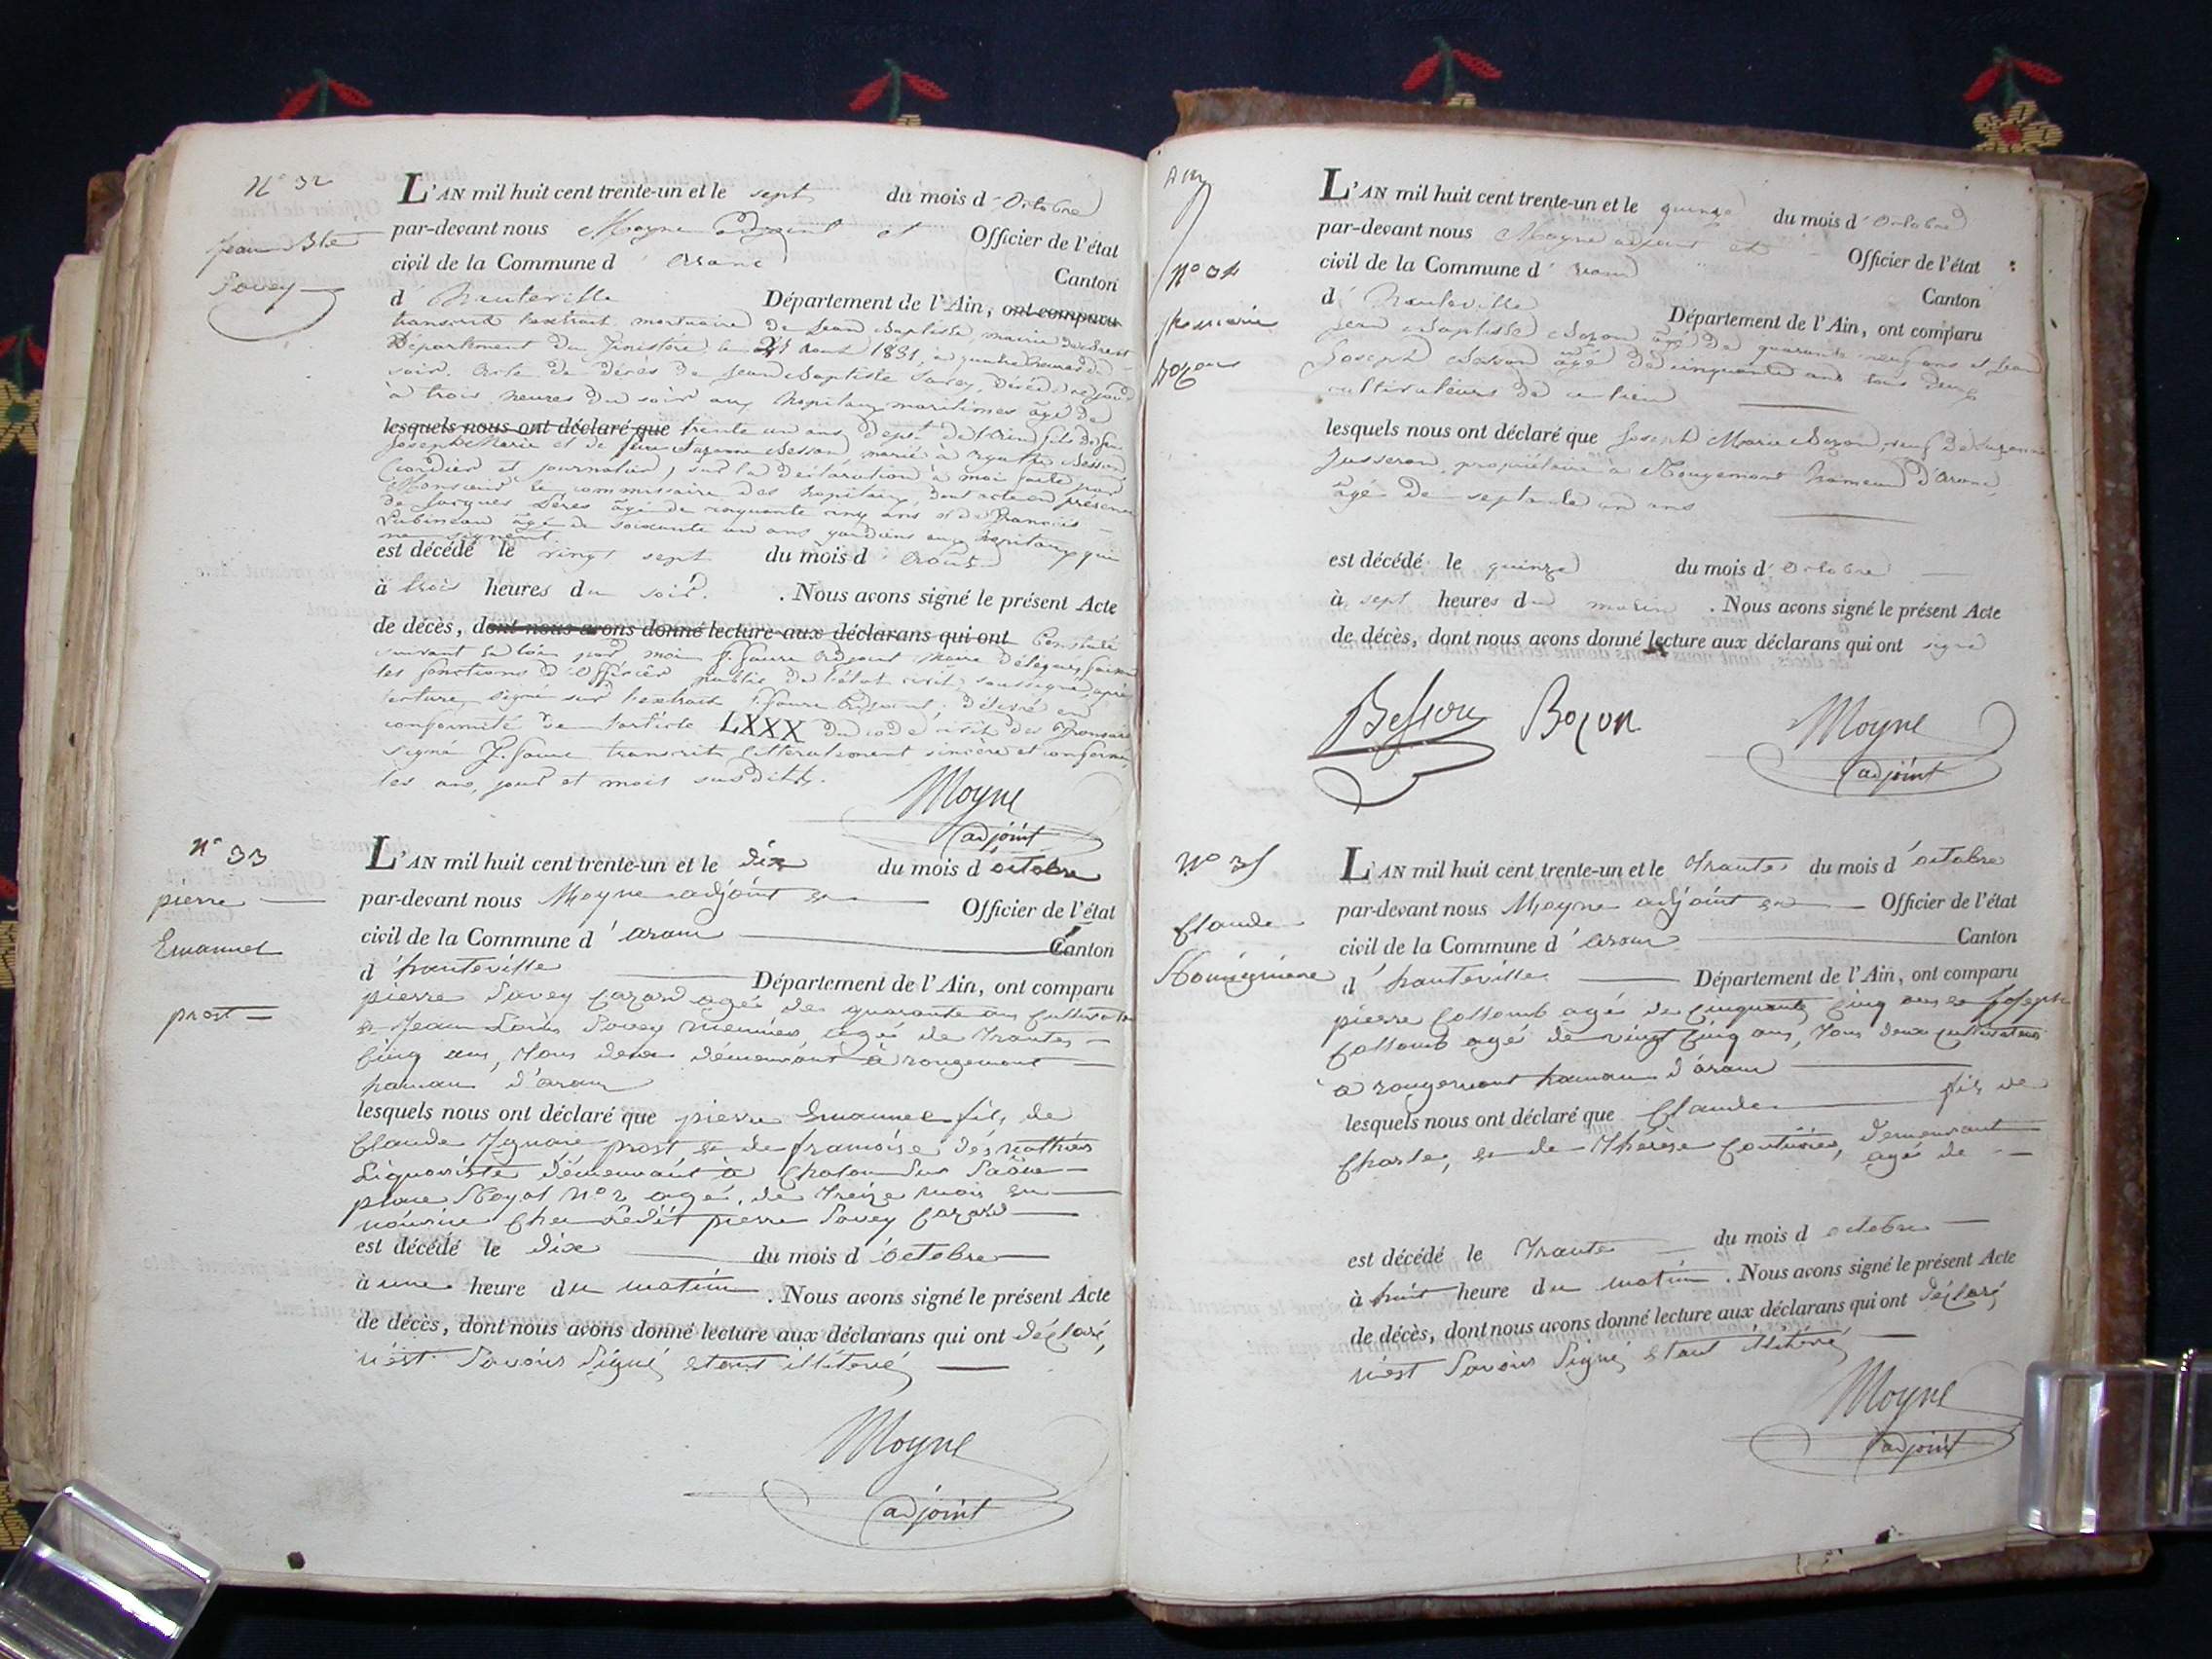 N° 32
Jean Bte
Savey
L'AN mil huit cent trente-un et le sept du mois d'Octobre
par-devant nous Moyne adjoint et Officier de l'état
civil de la Commune d'Aranc Canton
d'hauteville Département de l'Ain, ont comparu
transcrit l'extrait mortuaire de Jean Baptiste, mairie de Brest
Département du finistère, le 27 aout 1831, à quatre heures du
soir. Acte de décès de Jean Baptiste Savey, décédé ce jour
à trois heures du soir aux hopitaux maritimes âgé de
lesquels nous ont déclaré que trente un ans, dépt. de l'ain fils de feu
Joseph Marie et de feue Suzanne Besson, marié à Besson
et journalier, sur la déclaration à moi faite par
Monsieur le commissaire des hopitaux, dont acte en présence
de Jacques âgé de cinquante cinq ans et de François
âgé de soixante un ans gardiens aux hopitaux qui
ne signent
est décédé le vingt sept du mois d'aout
à trois heures du soir. Nous avons signé le présent Acte
de décès, dont nous avons donné lecture aux déclarans qui ont Constaté
suivant la loi par moi J. faure adjoint maire délégué, faisant
les fonctions d'officier public de l'état civil, soussigné, après
lecture, signé sur l'extrait J. faure adjoint, délivré en
conformité de l'article LXXX du code civil des français
signé J. faure transcrit littéralement sincère et conforme
les ans, jour et mois susdits.
Moyne
adjoint
N° 33
pierre
Emanuel
prost
L'AN mil huit cent trente-un et le dix du mois d'octobre
par-devant nous Moyne adjoint en Officier de l'état
civil de la Commune d'aranc Canton
d'hauteville Département de l'Ain, ont comparu
pierre Savey Cazard agé de quarante ans Cultivateur
et Jean Louis Savey agé de trante
Cinq ans, tous deux démeurant à rougemont
hamau d'aranc
lesquels nous ont déclaré que pierre Emannel fils de
Claude Ignace prost et de framoise
Liquoriste démeurant à Chalon sur Saône
place Royal N° 2 agé, de treize mois en
nourice Chez pierre Savey Cazard
est décédé le dix du mois d'octobre
à une heure du matin. Nous avons signé le présent Acte
de décès, dont nous avons donné lecture aux déclarans qui ont déclaré,
n'est Savoir Signé, étant illitéré
Moyne
adjoint
N° 34
Bozon
L'AN mil huit cent trente-un et le quinze du mois d'Octobre
par-devant nous Moyne adjoint et Officier de l'état
civil de la Commune d'aranc Canton
d'hauteville Département de l'Ain, ont comparu
Jean Baptiste Bozon âgé de quarante neuf ans et Jean
Joseph Besson âgé de cinquante ans tous deux
cultivateurs de ce lieu
lesquels nous ont déclaré que Joseph Marie Bozon, veuf de Suzanne
Jusseron, propriétaire à Rougemont hameau d'aranc,
âgé de septante un ans
est décédé le quinze du mois d'Octobre
à sept heures du matin. Nous avons signé le présent Acte
de décès, dont nous avons donné lecture aux déclarans qui ont signé
Besson Bozon Moyne
adjoint
N° 35
Claude
L'AN mil huit cent trente-un et le trante du mois d'octobre
par-devant nous Moyne adjoint en Officier de l'état
civil de la Commune d'aranc Canton
d'hauteville Département de l'Ain, ont comparu
pierre Collomb agé de cinquante cinq ans et Joseph
Collomb agé de vingt Cinq ans, tous deux cultivateurs
à rougemont hamau d'aranc
lesquels nous ont déclaré que Claude fils de
Charle, et de Thérèse demeurant
agé de
est décédé le trante du mois d octobre
à huit heure du matin. Nous avons signé le présent Acte
de décès, dont nous avons donné lecture aux déclarans qui ont déclaré
n'est Savoir Signé, étant illitéré
Moyne
adjoint